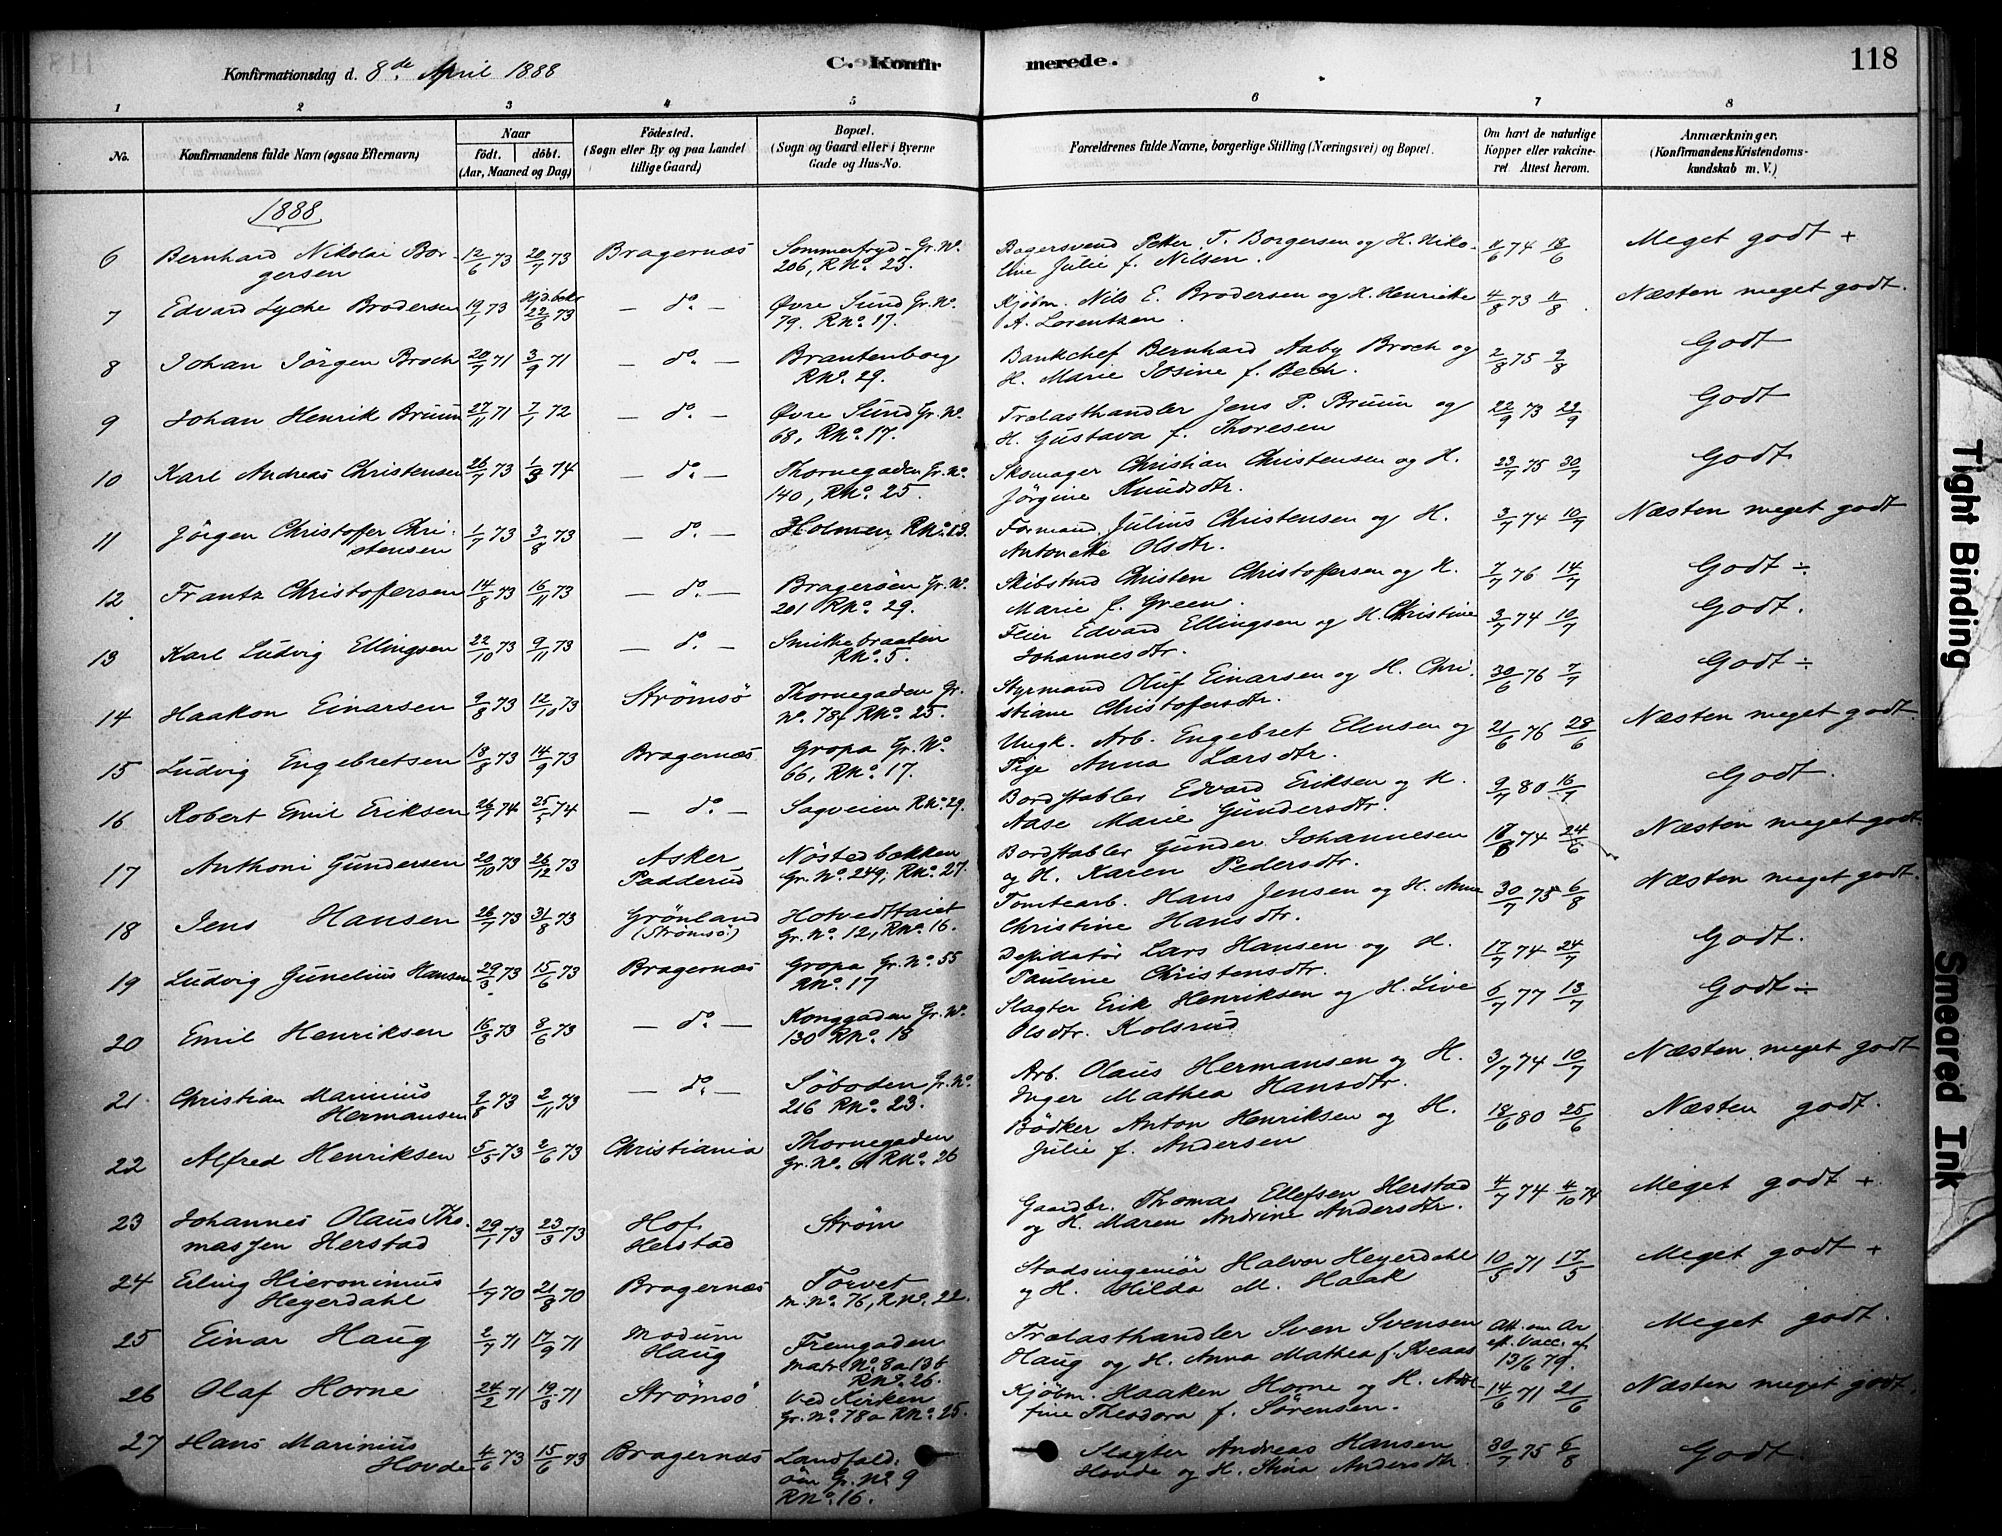 Konfirmationsdag d. 8de April 1888
C. Konfirmerede.
118
1 2 3 4 5 6 7 8
No.
Konfirmandens fulde Navn (ogsaa Efternavn)
Naar
födt. döbt.
(Aar, Maaned og Dag)
Födested.
(Sogn eller By og paa Landet
tillige Gaard)
Bopæl.
(Sogn og Gaard eller i Byerne
Gade og Hus-No.
Forældrenes fulde Navne, borgerlige Stilling (Næringsvei) og Bopæl.
Om havt de naturlige
Kopper eller vakcine-
ret Attest herom.
Anmærkninger.
(Konfirmandens Kristendoms-
kundskab m. V.)
1888
6 Bernhard Nikolai Bor- 12/6 73 20/7 73 Bragernæs Sommerfryd - Gr. No.
gersen 206, RNo. 23.
Bagersvend Petter T. Borgersen og H. Niko- 11/6 74 18/6 Meget godt +
line Julie f. Nilsen.
7 Edvard Lyche Brodersen 19/1 73 22/6 73 — do. — Øvre Sund Gr. No.
79. RNo. 17.
Kjøbm. Nils E. Brodersen og H. Henrikke 4/8 73 11/8 Næsten meget godt.
A. Lorentzen.
8 Johan Jörgen Broch 20/7 71 3/9 71 — do. — Brantenborg
RNo. 29.
Bankchef Bernhard Aaby Broch og 2/8 75 9/8 Godt
H. Marie Josine f. Bech.
9 Johan Henrik Bruun 27/11 71 7/1 72 — do. — Øvre Sund Gr. No.
68, RNo. 17.
Trælasthandler Jens P. Bruun og 22/9 73 29/9 Godt
H. Gustava f. Thoresen
10 Karl Andreas Christensen 26/7 73 1/3 74 — do. — Thornegaden Gr. No.
140, RNo. 25.
Skomager Christian Christensen og H. 23/7 75 30/7 Godt
Jörgine Knudsdtr.
11 Jörgen Christoffer Chri- 1/7 73 3/8 73 — do. — Holmen RNo. 13.
stensen
Formand Julius Christensen og H. 3/7 74 10/7 Næsten meget godt
Antonette Olsdtr.
12 Frantz Christoffersen 14/8 73 16/11 73 — do. — Bragerøen Gr. No.
201 RNo. 29.
Skibstmd Christen Christoffersen og H. 7/7 76 14/7 Godt ÷
Marie f. Green.
13 Karl Ludvig Ellingsen 22/10 73 9/11 73 — do. — Smithebraaten
RNo. 5.
Feier Edvard Ellingsen og H. Christine 3/7 74 10/7 Godt.
Johannesdtr.
14 Haakon Einarsen 9/8 73 12/10 73 Strömsö Thornegaden Gr.
No. 78f RNo. 25.
Styrmand Oluf Einarsen og H. Chri- 30/6 76 7/7 Godt ÷
stiane Christoffersdtr.
15 Ludvig Engebretsen 18/8 73 14/9 73 Bragernæs Gropa Gr. No.
66, RNo. 17.
Ungk. Arb. Engebret Elensen og 21/6 76 28/6 Næsten meget godt.
Pige Anna Larsdtr.
16 Robert Emil Eriksen 26/2 74 25/5 74 — do. — Sagveien RNo. 29.
Bordstabler Edvard Eriksen og H. 9/7 80 16/7 Godt.
Aase Marie Gundersdtr.
17 Anthoni Gundersen 20/10 73 26/12 73 Asker Nöstedbækken
Padderud Gr. No. 249, RNo. 27.
Bordstabler Gunder Johannesen 17/6 74 24/6 Næsten meget godt
og H. Karen Pedersdtr.
18 Jens Hansen 26/7 73 31/8 73 Grönland Hotvedttaiet
(Strömsö) Gr. No. 12, RNo. 16.
Tomtearb. Hans Jensen og H. Anne 30/7 75 6/8 Næsten meget godt.
Christine Hansdtr.
19 Ludvig Gunelius Hansen 29/3 73 15/6 73 Bragernæs Gropa Gr. No. 55
RNo. 17
Lars Hansen og H. 17/7 74 24/7 Godt.
Pauline Christensdtr.
20 Emil Henriksen 16/3 73 8/6 73 — do. — Konggaden Gr. No.
130 RNo. 18
Slagter Erik Henriksen og H. Live 6/7 77 13/7 Godt ÷
Olsdtr. Kolsrud
21 Christian Marinius 2/8 73 2/11 73 — do. — Söboden Gr. No.
Hermansen 216 RNo. 23.
Arb. Olaus Hermansen og H. 3/7 74 10/7 Næsten meget godt
Inger Mathea Hansdtr.
22 Alfred Henriksen 5/5 73 2/6 73 Christiania Thornegaden
Gr. No. 61 RNo. 26
Bödker Anton Henriksen og H. 18/6 80 25/6 Næsten godt.
Julie f. Andersen
23 Johannes Olaus Tho- 29/1 73 23/3 73 Hof Ström
massen Herstad Herstad
Gaardbr. Thomas Ellefsen Herstad 4/7 74 4/10 74 Meget godt +
og H. Maren Andrine Andersdtr.
24 Erling Hieronimus 1/7 70 21/8 70 Bragernæs Torvet
Heyerdahl m. No. 76, RNo. 22.
Stadsingeniör Halvor Heyerdahl 10/5 71 17/5 Meget godt +
og H. Hilda M. Haak
25 Einar Haug 2/7 71 17/9 71 Modum Fremgaden
Haug matr. No. 8a 136
RNo. 26.
Trælasthandler Sven Svensen Att. om Ar Meget godt.
Haug og H. Anna Mathea f. Skeaas eft. Vacc. af
13/6 79.
26 Olaf Horne 24/2 71 19/3 71 Strömsö Ved Kirken
Gr. No. 78a RNo. 25.
Kjöbm. Haaken Horne og H. Adol- 14/6 71 21/6 Næsten meget godt.
fine Theodora f. Sörensen.
27 Hans Marinius 4/6 73 15/6 73 Bragernæs Landfald-
Hovde öen Gr. No. 9
RNo. 16.
Slagter Andreas Hansen 30/7 75 6/8 Godt.
Hovde og H. Stina Andersdtr.
Tight Binding
Smeared Ink